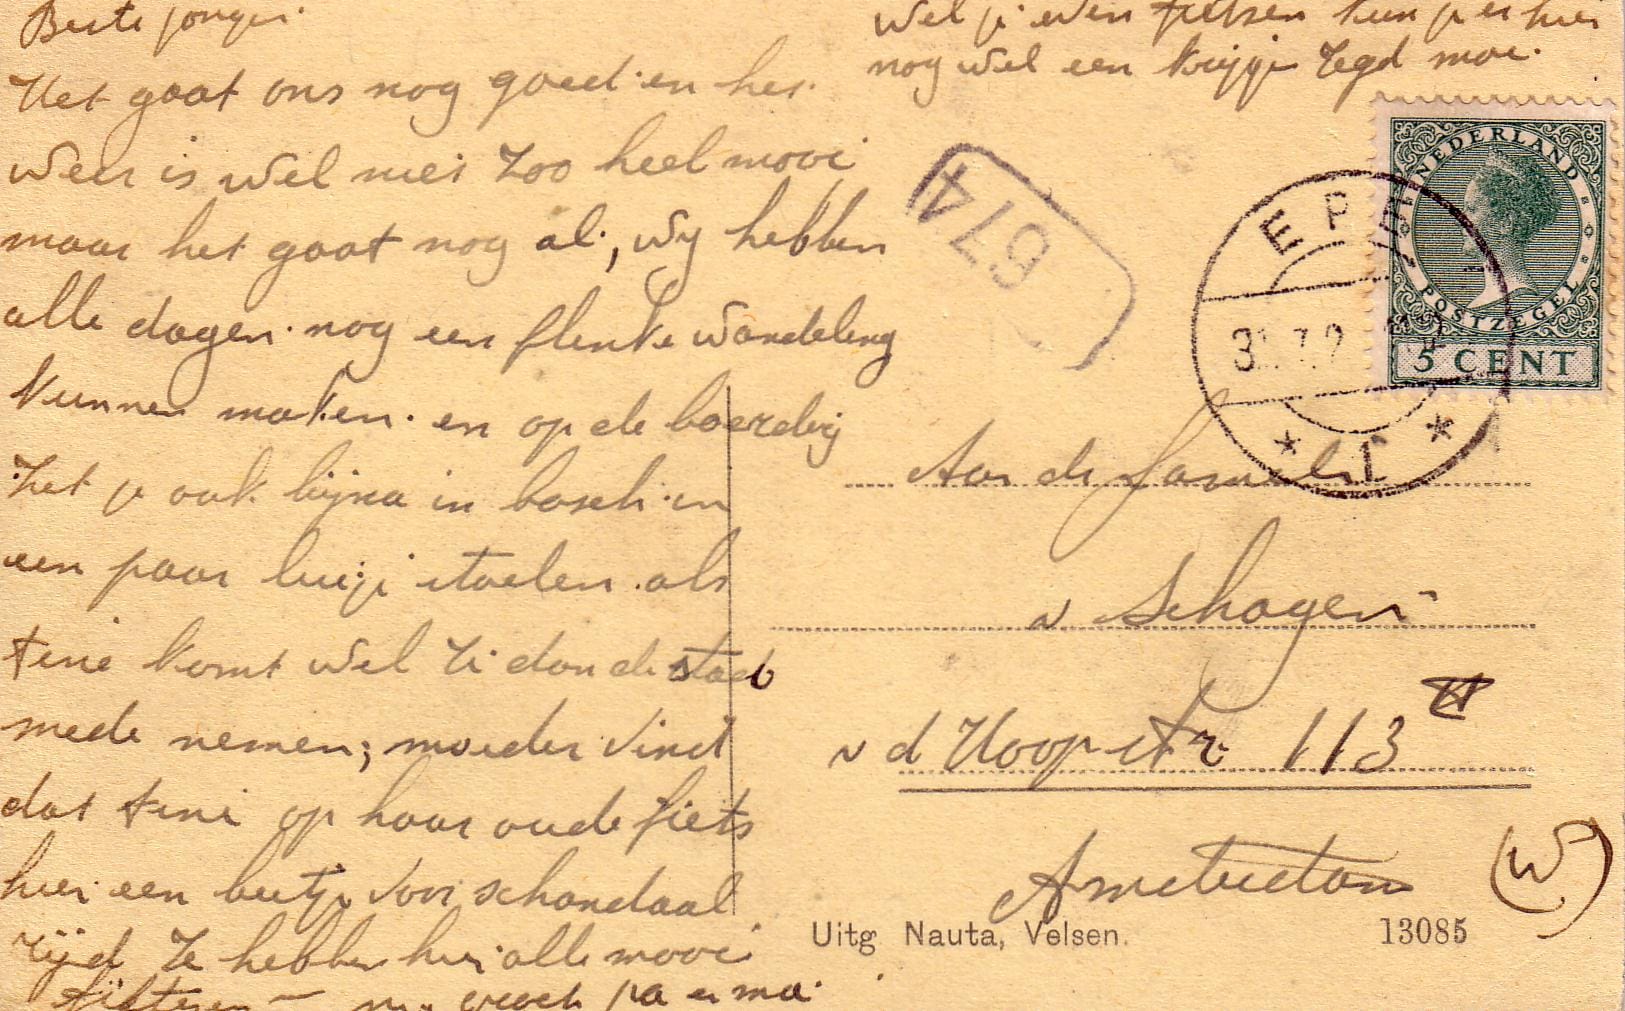 Beste jonges.
Het gaat ons nog goed en het
weer is wel niet zoo heel mooi
maar het gaat nog al, wij hebben
alle dagen nog een flinke wandeling
kunnen maken. en op de boerderij
zet je ook bijna in bosch in
een paar luije stoelen als
tini komt wel
mede nemen; moeder vind
dat tini op haar oude fiets
hier een beetje voor schandaal
rijd ze hebben hier alle mooi
fietsen pa en moe.
wel je even fietsen kun je er hier
nog wel een krijgen zegd moe.
6714
NEDERLAND
POSTZEGEL
5 CENT
EP
31.7.2
Aan de Familie
v Schagen
v d Hoopstr 113 II
Amsterdam
(W)
Uitg Nauta, Velsen.
13085